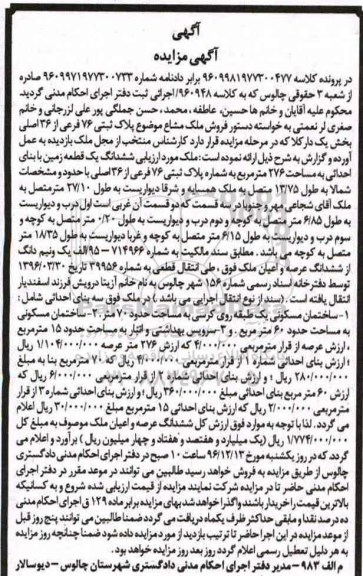 آگهی
آگهی مزایده
در پرونده کلاسه ۹۶۰۹۹۸۱۹۷۷۳۰۰۴۷۷ برابر دادنامه شماره ۹۶۰۹۹۷۱۹۷۷۳۰۰۷۳۳ صادره
از شعبه ۳ حقوقی چالوس که به کلاسه ۹۶۰۹۴۸/اجرائی ثبت دفتر اجرای احکام مدنی گردید.
محکوم علیه آقایان و خانم ها حسین، عاطفه، محمد، حسن جملگی پور علی لزرجانی و خانم
صغری لر نعمتی به خواسته دستور فروش ملک مشاع موضوع پلاک ثبتی ۷۶ فرعی از ۳۶ اصلی
بخش یک دارکلا که در مرحله مزایده قرار دارد کارشناس منتخب از محل ملک بازدیده به عمل
آورده و گزارش به شرح ذیل ارائه نموده است: ملک مورد ارزیابی ششدانگ یک قطعه زمین با بنای
احداثی به مساحت ۲۷۶ مترمربع به شماره پلاک ثبتی ۷۶ فرعی از ۳۶ اصلی با حدود و مشخصات
شمالا به طول ۱۳/۷۵ متصل به ملک همسایه و شرقا دیواریست به طول ۳۷/۱۰ مترمتصل به
ملک آقای شجاعی مهر و جنوبا در سه قسمت که دو قسمت آن غربی است اول درب و دیواریست
به طول ۶/۸۵ متر متصل به کوچه و دوم درب و دیواریست به طول ۰/۲۰ متر متصل به کوچه و
سوم درب و دیواریست به طول ۶/۱۵ متر متصل به کوچه و غربا دیواریست به طول ۱۸/۳۵ متر
متصل به کوچه می باشد. مطابق سند مالکیت به شماره ۷۱۴۹۶۶ - ۹۵/الف یک ونیم دانگ
از ششدانگ عرصه و اعیان ملک فوق، طی انتقال قطعی به شماره ۳۹۹۵۶ تاریخ ۱۳۹۶/۰۳/۳۰
توسط دفترخانه اسناد رسمی شماره ۱۵۶ شهر چالوس به نام خانم آزیتا درویش فرزند اسفندیار
انتقال یافته است. (سند از نوع انتقال اجرایی می باشد) در ملک فوق سه بنای احداثی شامل:
۱-ساختمان مسکونی یک طبقه روی کرسی به مساحت حدود ۷۰ متر. ۲-ساختمان مسکونی
به مساحت حدود ۶۰ متر مربع. و ۳-سرویس بهداشتی و انبار به مساحت حدود ۱۵ مترمربع
، ارزش عرصه از قرار مترمربعی ۴/۰۰۰/۰۰۰ که ارزش ۲۷۶ متر عرصه ۱/۱۰۴/۰۰۰/۰۰۰ ریال
؛ ارزش بنای احداثی شماره ۱ از قرار مترمربعی ۴/۰۰۰/۰۰۰ ریال که ۷۰ مترمربع بنا به مبلغ
۲۸۰/۰۰۰/۰۰۰ ریال؛ و ارزش بنای احداثی شماره ۲ از قرار مترمربعی ۶/۰۰۰/۰۰۰ ریال که
ارزش ۶۰ متر مربع بنای احداثی مبلغ ۳۶۰/۰۰۰/۰۰۰ ریال؛ و ارزش بنای احداثی شماره ۳ از قرار
مترمربعی ۲/۰۰۰/۰۰۰ ریال که ارزش بنای احداثی ۱۵ مترمربع مبلغ ۳۰/۰۰۰/۰۰۰ ریال اعلام
می گردد. لذا با توجه به موارد فوق ارزش کل ششدانگ عرصه و اعیان ملک موصوف به مبلغ کل
۱/۷۷۴/۰۰۰/۰۰۰ ریال (یک میلیارد و هفتصد و هفتاد و چهار میلیون ریال) برآورد و اعلام می
گردد. که در روز یکشنبه مورخ ۹۶/۱۲/۱۳ ساعت ۱۰ صبح در دفتر اجرای احکام مدنی دادگستری
چالوس از طریق مزایده به فروش خواهد رسید طالبین می توانند در موعد مقرر در دفتر اجرای
احکام مدنی حاضر تا در مزایده شرکت نمایند مزایده از قیمت ارزیابی شده شروع و به کسانیکه
بالاترین قیمت را خریدار باشند واگذار خواهد شد بهای مزایده برابر ماده ۱۲۹ ق اجرای احکام مدنی
ده درصد نقدا و مابقی حداکثر ظرف یکماه دریافت می گردد ضمنا طالبین می توانند پنج روز قبل
از موعد مزایده در این اجرا حاضر تا ترتیب بازدید از مورد مزایده داده شود ضمنا چنانچه روز مزایده
به هر دلیل تعطیل رسمی اعلام گردد روز بعد روز مزایده خواهد بود.
م الف ۹۸۳ - مدیر دفتر اجرای احکام مدنی دادگستری شهرستان چالوس - دیوسالار